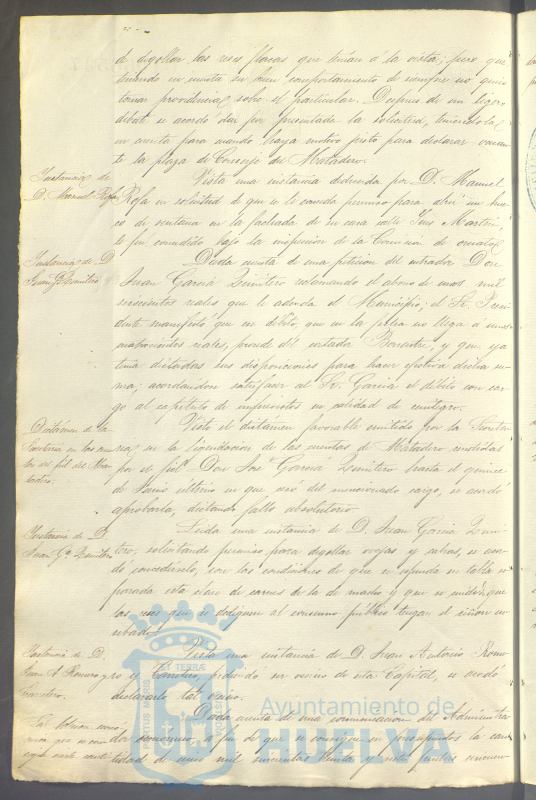 de degollar las reses flacas que tenian á la vista; pero que
teniendo en cuenta su buen comportamiento de siempre no quiso
tomar providencias sobre el particular. Despues de un ligero
debate se acordó dar por presentada la solicitud, teniéndola
en cuenta para cuando haya motivo justo para declarar vacan-
te la plaza de Conserje del Matadero.
Instancia de
D. Manuel Rofa
Vista una instancia deducida por D. Manuel
Rofa en solicitud de que se le conceda permiso para abrir un hue-
co de ventana en la fachada de su casa calle Martin,
le fué concedido bajo la inspeccion de la Comision de ornato.
Instancia de D.
Juan Gª Quintero
Dada cuenta de una peticion del entrador Don
Juan Garcia Quintero reclamando el abono de unos mil
seiscientos reales que le adeuda el Municipio; el Sr. Presi-
dente manifestó que ese débito, que en la fecha no llega á unos
cuatrocientos reales, procede del y que ya
tenia dictadas sus disposiciones para hacer efectiva dicha su-
ma; acordandose satisfacer al Sr. Garcia el débito con car-
go al capitulo de imprevistos en calidad de reintegro.
Dictámen de la
Secretaria en las cuen-
tas del fiel del Ma-
tadero.
Visto el dictámen favorable emitido por la Secreta-
ria en la liquidacion de las cuentas de Matadero rendidas
por el fiel Don José Garcia Quintero hasta el quince
de Junio último en que cesó del mencionado cargo, se acordó
aprobarla, dictando fallo absolutorio.
Instancia de D.
Juan Gª Quintero
Leida una instancia de D. Juan Garcia Quin-
tero, solicitando permiso para degollar ovejas y cabras, se acor-
dó concedérselo, con las condiciones de que se espenda en tabla se-
parada esta clase de carnes de la de macho y que se cuide que
las reses que se destinen al consumo público tengan el riñon cu-
bierto.
Instancia de D.
Juan A. Romero y
Vista una instancia de D. Juan Antonio Rome-
ro y pidiendo ser vecino de esta Capital, se acordó
declararlo tal vecino.
Dada cuenta de una comunicacion del Administra-
dor economico, á fin de que se consigne en presupuestos la can-
tidad de mil treinta y siete pesetas
Ayuntamiento de
HUELVA
PORTUS MARIS
ET TERRÆ
CUSTODIA